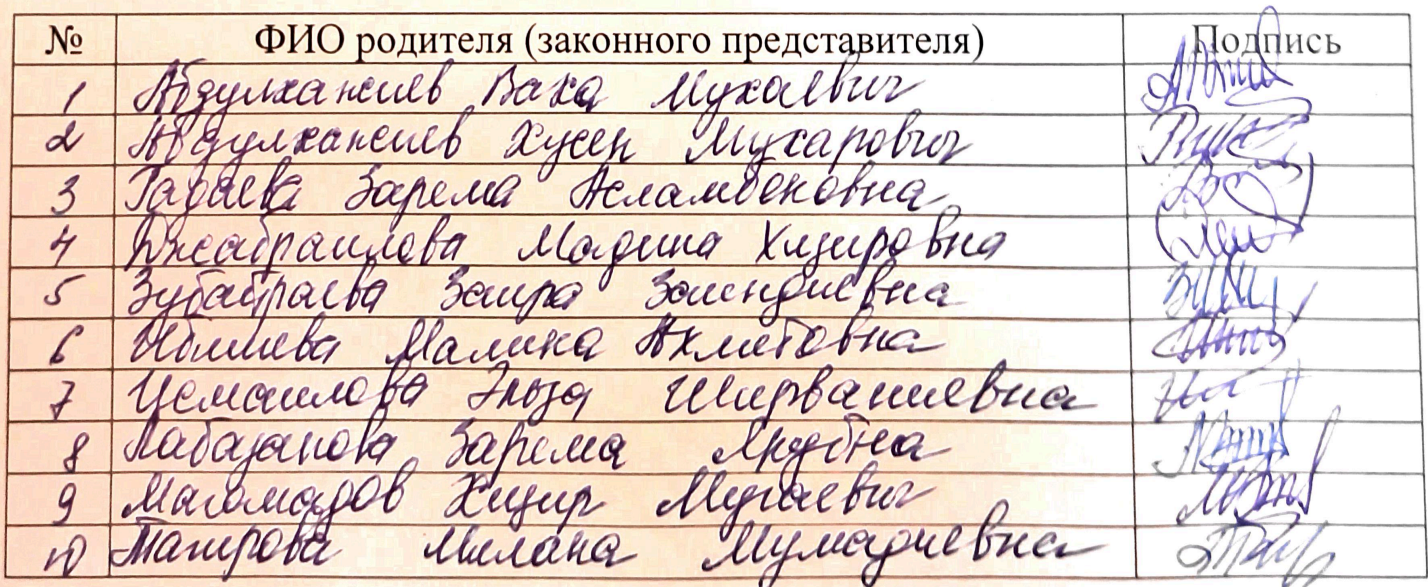 № ФИО родителя (законного представителя) Подпись
1 Абдулханжиев Ваха Мухаевич
2 Абдулханжиев Хусен Мухарович
3 Гадаева Зарема Асламбековна
4 Джабраилова Мадина Хизировна
5 Зубайраева Заира Зайндиевна
6 Ибиева Малика Ахметовна
7 Исмаилова Эльза Ширваниевна
8 Лабазанова Зарема
9 Магомадов Хизир Мугаевич
10 Тагирова Милана Мумадиевна